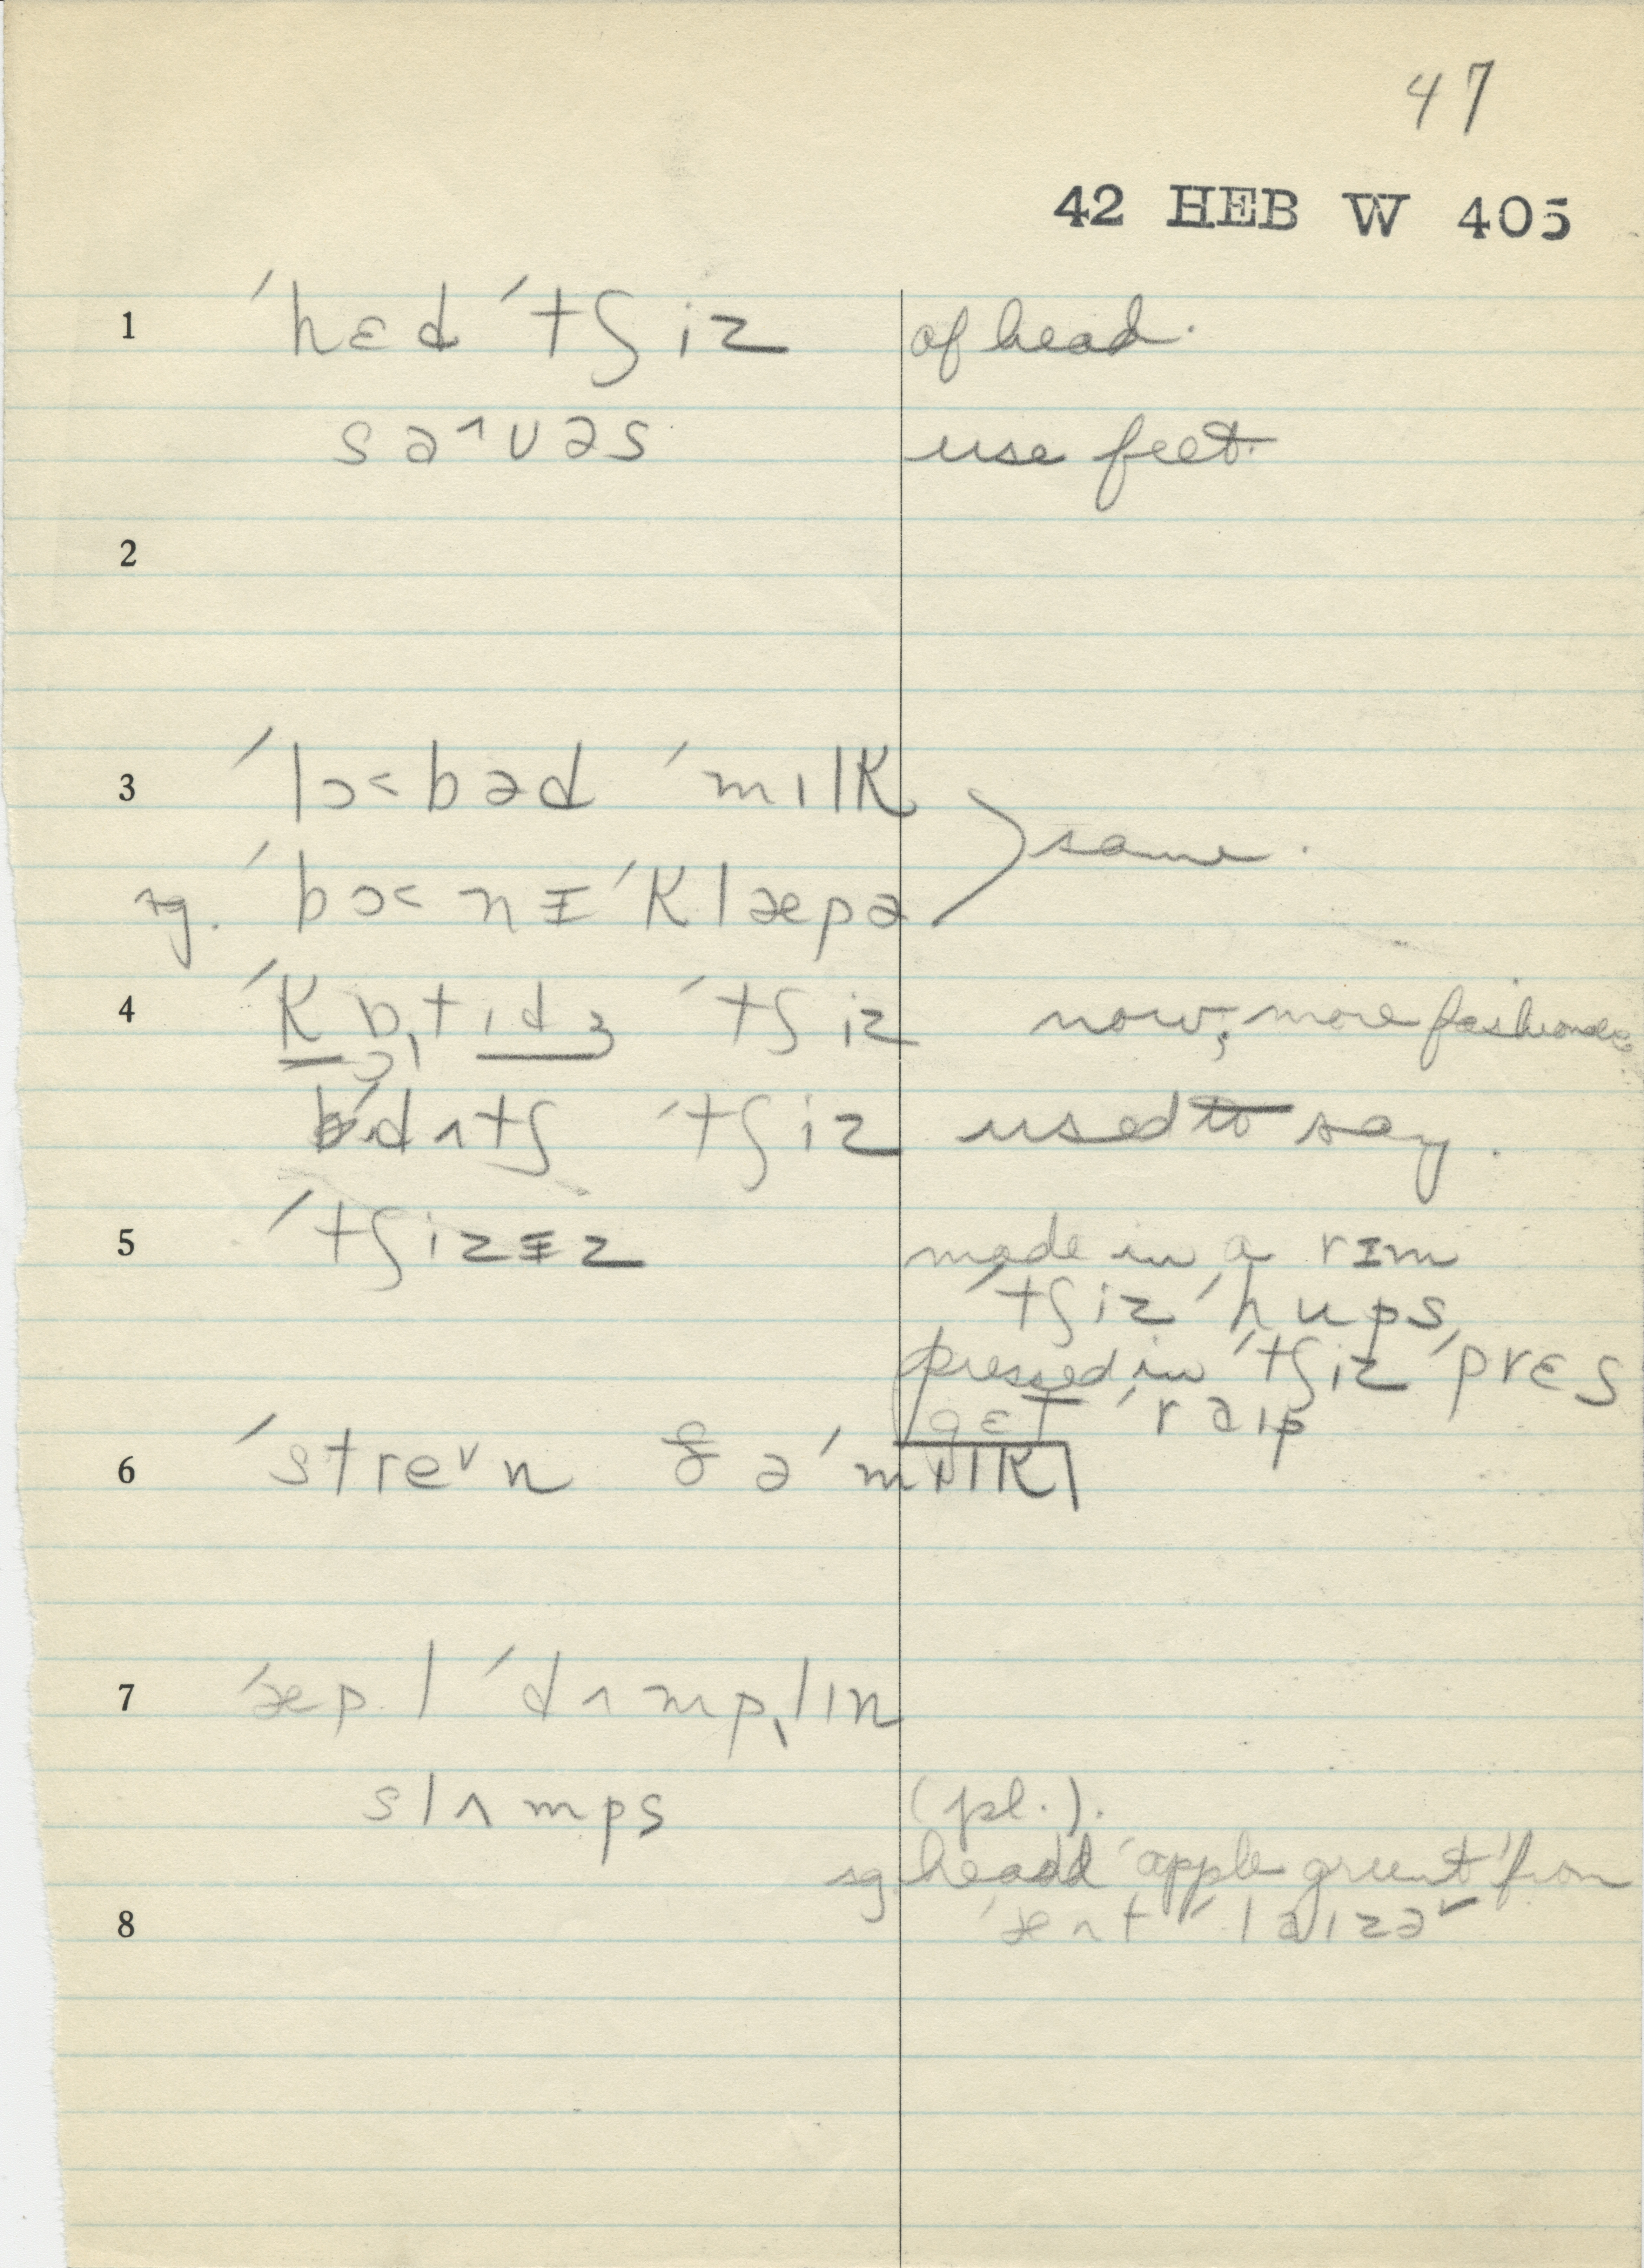 47
42 HEB W 405
1 ´hɛd ´tʃiz of head.
sa˄ʋəs use feet.
2
3 ´lɔ˂bəd ´mɪlK
same.
sg. ´bɔ˂nɪ´Klæpə
4 ´Kɒtɪdʒ ´tʃiz now; more fashionable
´dʌtʃ ´tʃiz used to say.
5 ´tʃizɪz made in a rɪm
´tʃiz ´hups,
pressed in ´tʃiz ´prɛs
gɛt ´raɪp
6 ´stre˅n ðə ´mɪlK
7 ´æpl ´dʌmp,lɪn
slʌmps (pl.).
sg. heard "apple grunt" from
8 ´ænt ´laɪzə